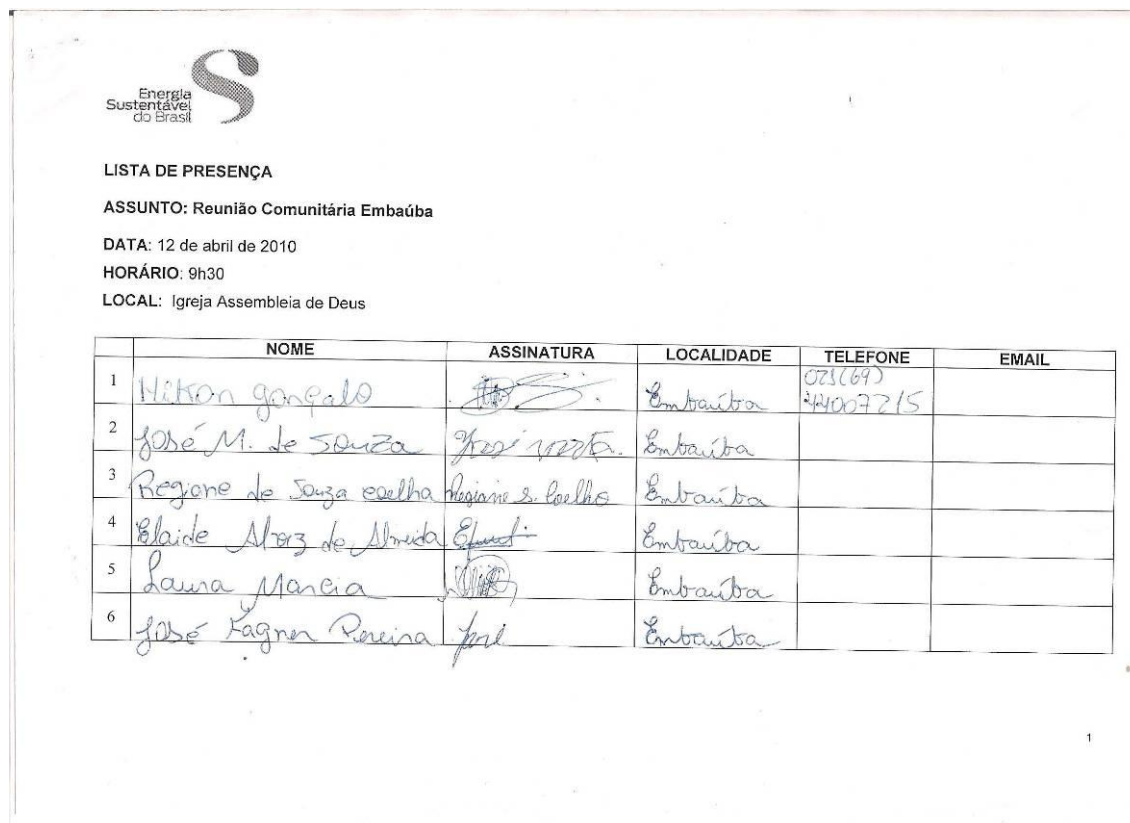 Energia
Sustentável
do Brasil
LISTA DE PRESENÇA
ASSUNTO: Reunião Comunitária Embaúba
DATA: 12 de abril de 2010
HORÁRIO: 9h30
LOCAL: Igreja Assembleia de Deus
NOME ASSINATURA LOCALIDADE TELEFONE EMAIL
1 gonçalo Embaúba
2 José M. de Souza José Embaúba
3 Regiane de Souza coelha Regiane S. Coelho Embaúba
4 Elaide de Almeida Embaúba
5 Laura Marcia Embaúba
6 José Fagner Pereira José Embaúba
1